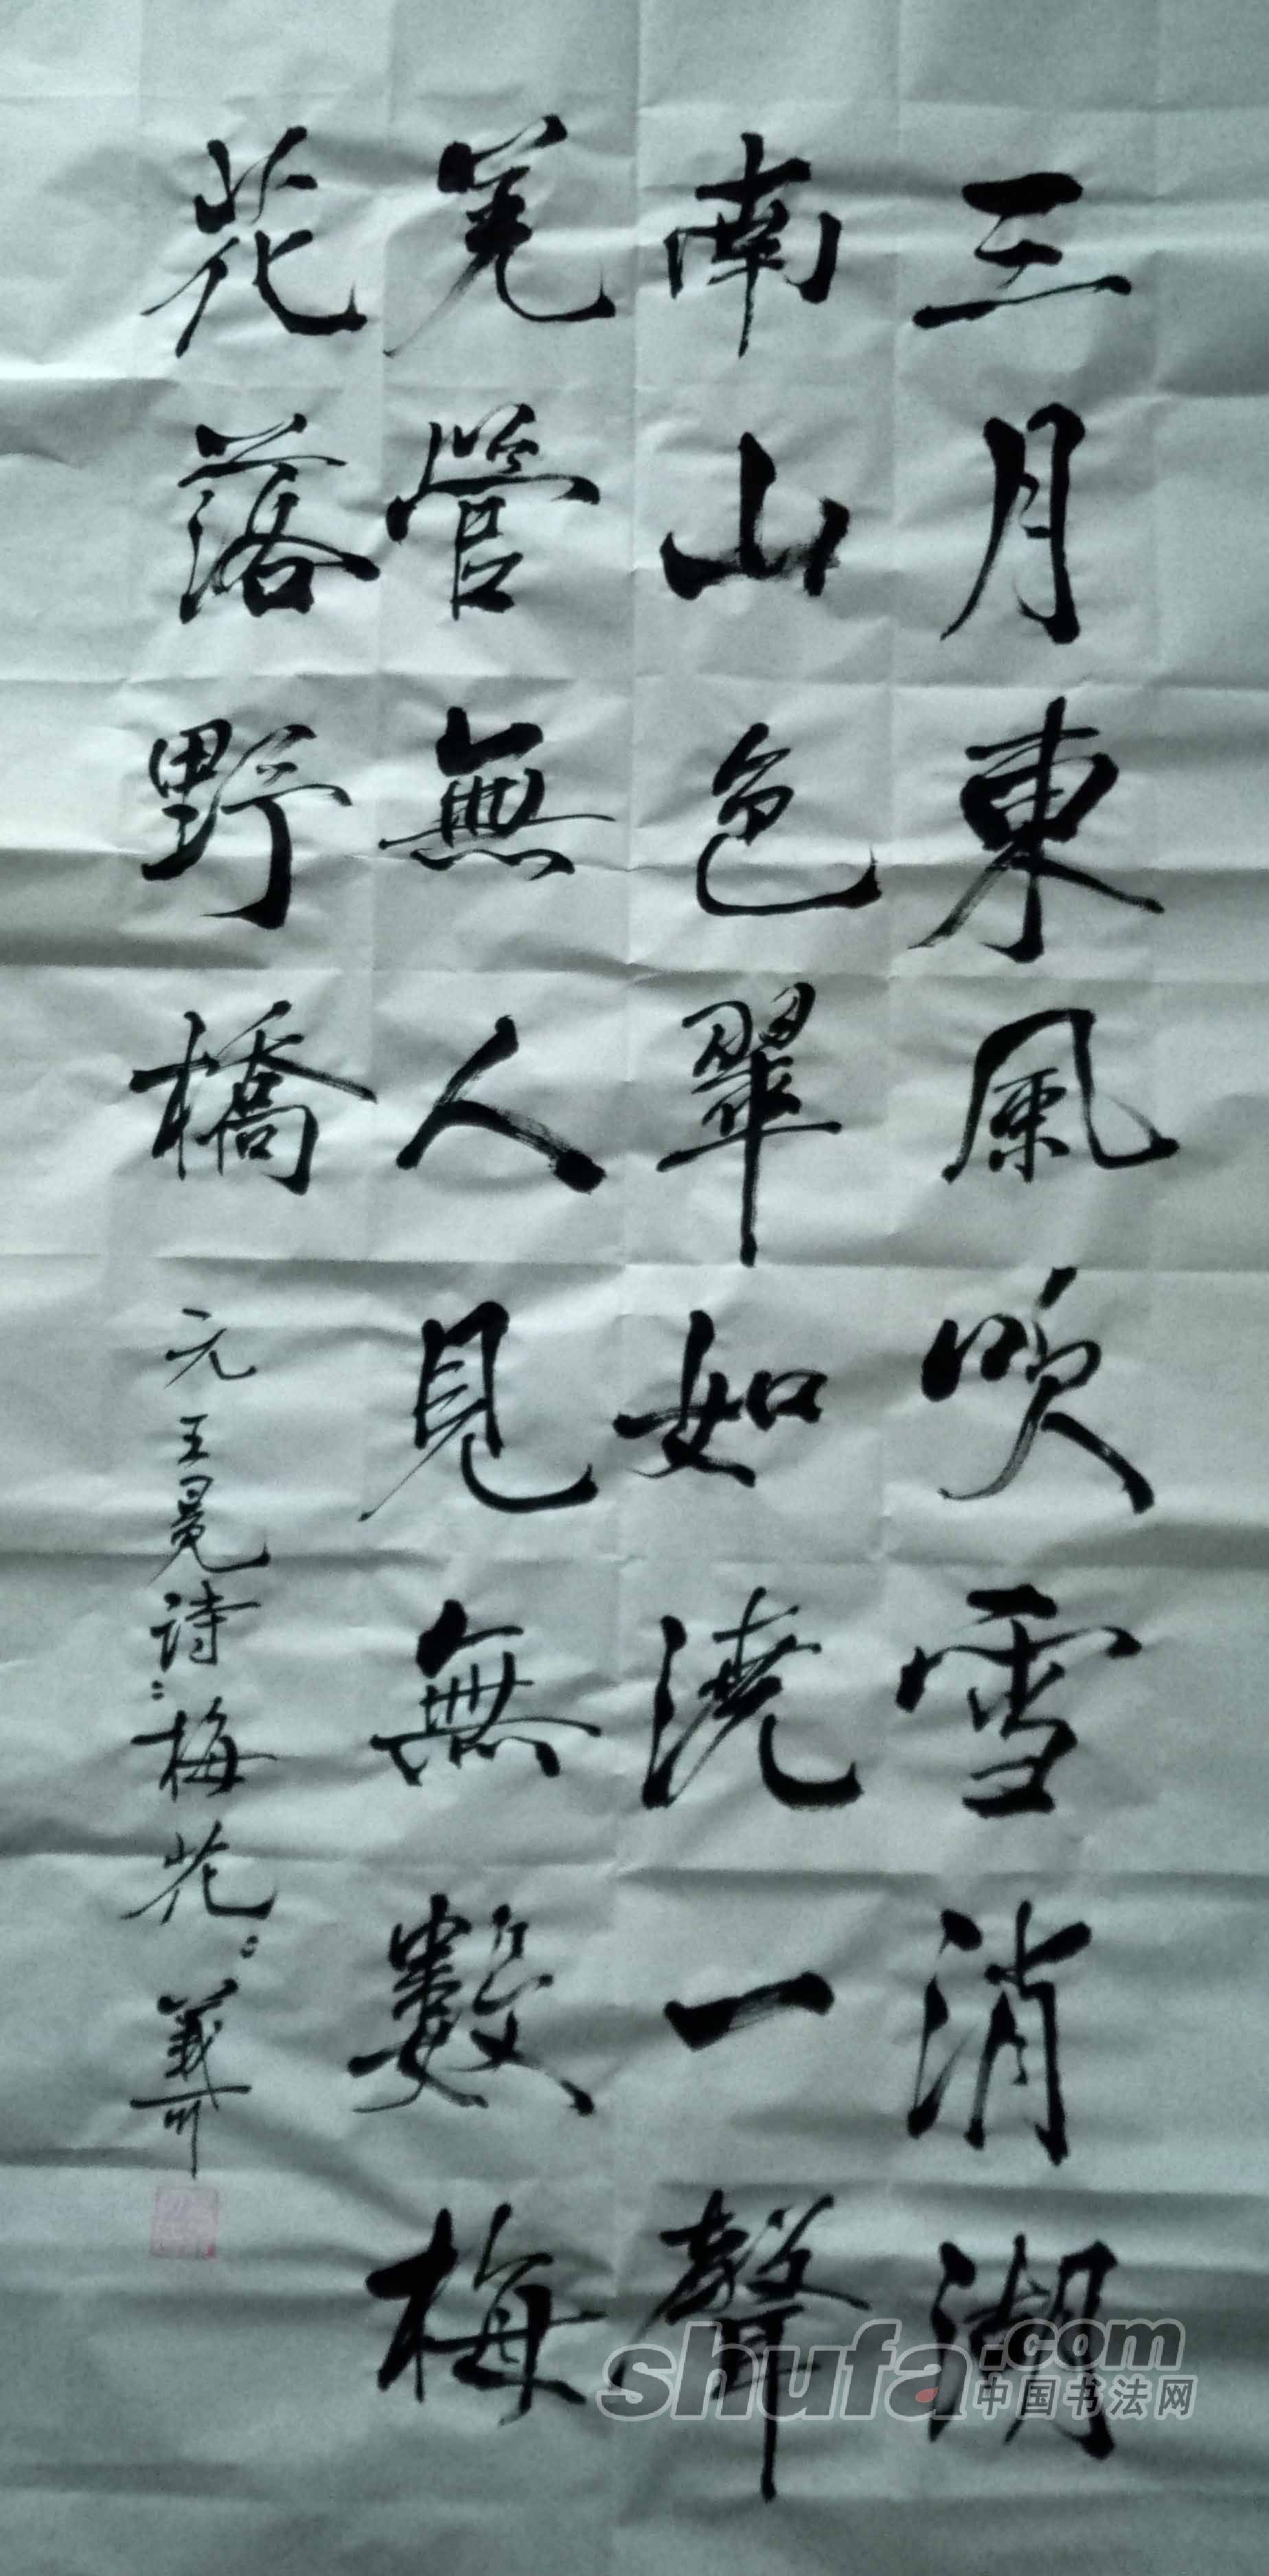 三月東風吹雪消湖
南山色翠如澆一聲
羌管無人見無數梅
花落野橋
元王冕诗:梅花:義
shufa.com
中国书法网